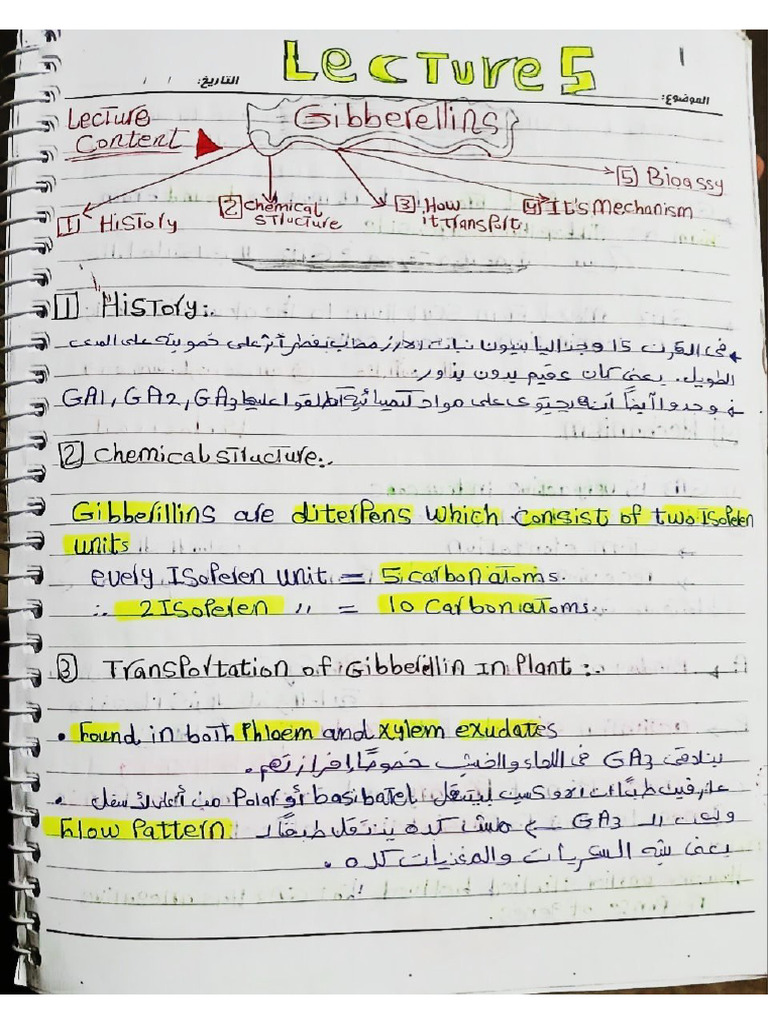 Lecture 5
1
التاريخ: / /
الموضوع:
Lecture Content
Gibberellins
1 History
2 chemical structure
3 How it transport
4 It's Mechanism
5 Bioassy
1 History:.
فى القرن 15 وجد اليابانيون نبات الارز مصاب بفطر أثر على خصوبته على المدى
الطويل. يعنى كان عقيم بدون بذور.
وجدوا أيضاً أنه يحتوى على مواد كيميائية اطلقوا عليها GA1, GA2, GA3
2 chemical structure:.
Gibberillins are diterpens which consist of two Isopren
units
every Isopren unit = 5 carbon atoms.
∴ 2 Isopren 〃 = 10 carbon atoms.
3 Transportation of Gibberellin in Plant:.
• Found in both Phloem and xylem exudates
بنلاقى GA3 فى اللحاء والخشب خصوصًا إفرازتهم.
• عارفين طبعًا ان الاوكسين بيتنقل Polar أو basibatel من أعلى لأسفل
ولكن الـ GA3 مش كده ينتقل طبقًا لـ Flow Pattern
يعنى شبه السكريات والمغذيات كده.